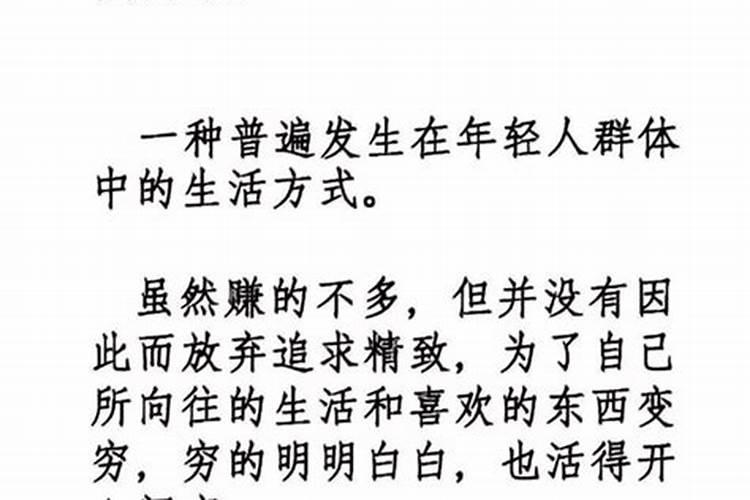 一种普遍发生在年轻人群体
中的生活方式。
虽然赚的不多，但并没有因
此而放弃追求精致，为了自己
所向往的生活和喜欢的东西变
穷，穷的明明白白，也活得开